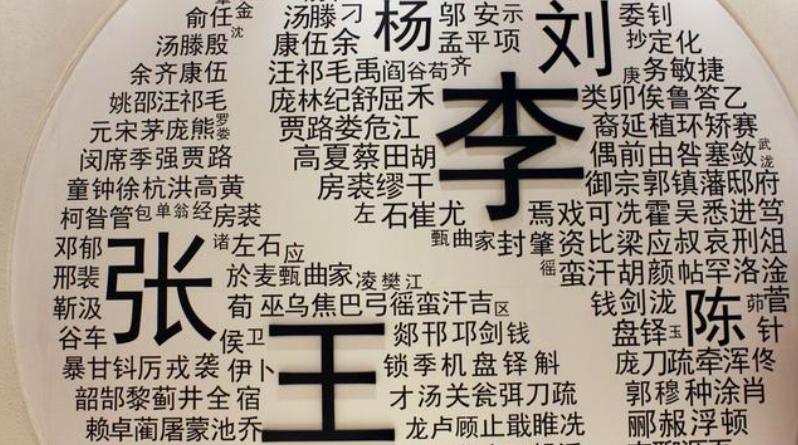 俞任金
汤滕刁 杨 邬安示 刘 委钊
汤滕殷沈 康伍余 孟平项 抄定化
余齐康伍 汪祁毛禹阎谷荀齐 庚务敏捷
姚邵汪祁毛 庞林纪舒屈禾 李 类卯俟鲁答乙
元宋茅庞熊罗娄 贾路娄危江 裔延植环矫赛
闵席季强贾路 高夏蔡田胡 偶前由昝塞敛武泷
童钟徐杭洪高黄 房裘缪干 御宗郭镇藩邸府
柯昝管包单翁经房裘 左石崔尤 焉戏可冼霍吴悉进笃
邓郁 张 诸左石应 甄曲家封肇资比梁应叔哀刑俎
邢裴 於麦甄曲家凌樊江 徭蛮汗胡颜帖罕洛淦
靳汲 荀巫乌焦巴弓徭蛮汗吉区 钱剑泷 陈 茆菅
谷车 侯卫 王 郯邗邛剑钱 盘铎玉 针
暴甘钭厉戎 袭伊卜 锁季机盘铎斛 庞刀疏牵浑佟
韶郜黎蓟井全宿 才汤关瓮弭刀疏 郭穆种涂肖
赖卓蔺屠蒙池乔 龙卢顾止戢睢冼 郦赧浮顿